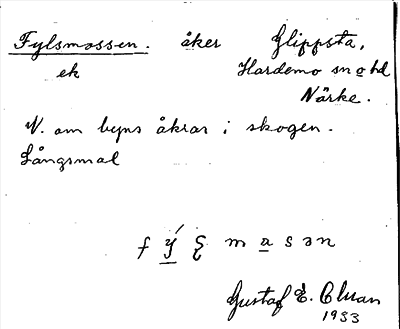 Fylsmossen. åker Glippsta,
ek Hardemo sn o hd
Närke.
N. om byns åkrar i skogen.
Långsmal
f ý ξ m a s ə n
Gustaf E.
1933